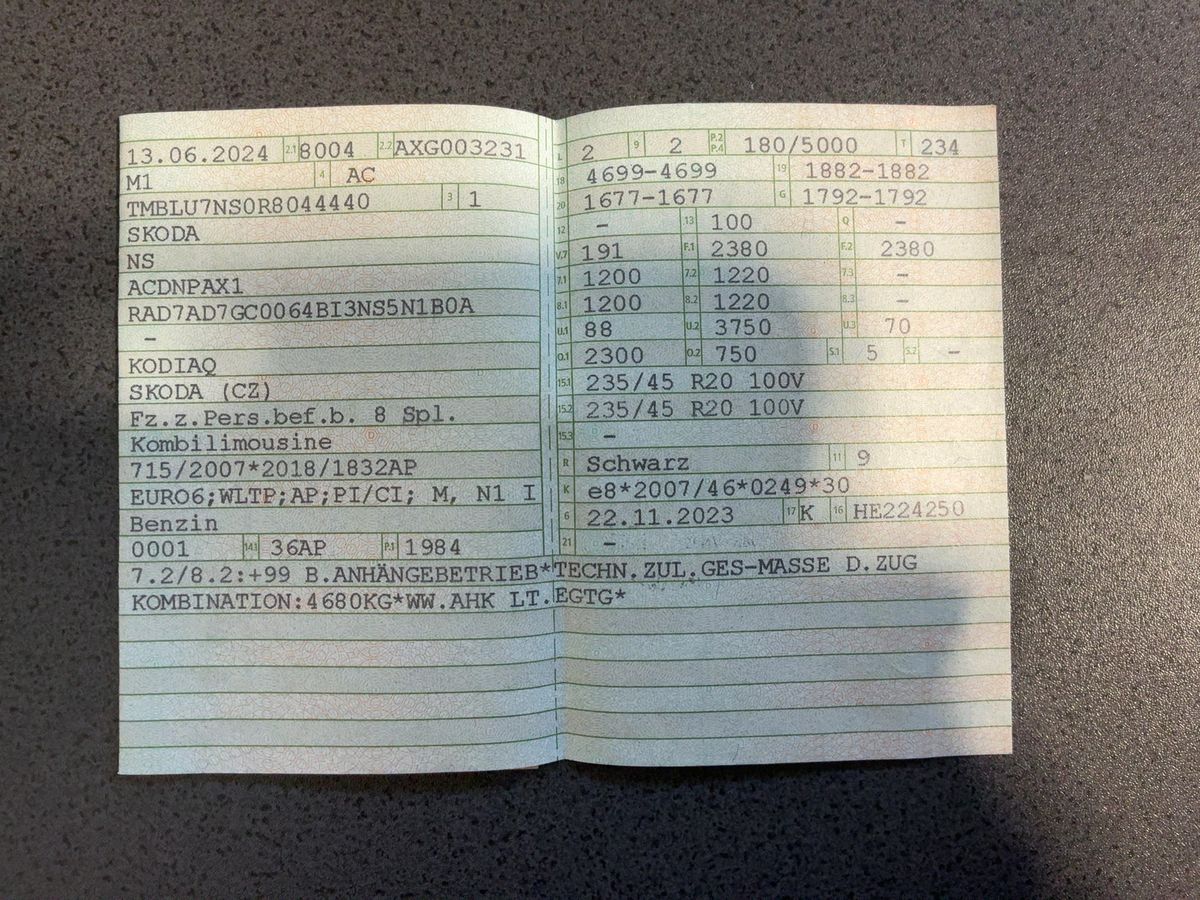 13.06.2024 2.1 8004 2.2 AXG003231
M1 4 AC
TMBLU7NS0R8044440 3 1
SKODA
NS
ACDNPAX1
RAD7AD7GC0064BI3NS5N1B0A
–
KODIAQ
SKODA (CZ)
Fz.z.Pers.bef.b. 8 Spl.
Kombilimousine
715/2007*2018/1832AP
EURO6;WLTP;AP;PI/CI; M, N1 I
Benzin
0001 14.1 36AP P.1 1984
L 2 9 2 P.2 P.4 180/5000 T 234
18 4699-4699 19 1882-1882
20 1677-1677 G 1792-1792
12 – 13 100 Q –
V.7 191 F.1 2380 F.2 2380
7.1 1200 7.2 1220 7.3 –
8.1 1200 8.2 1220 8.3 –
U.1 88 U.2 3750 U.3 70
O.1 2300 O.2 750 S.1 5 S.2 –
15.1 235/45 R20 100V
15.2 235/45 R20 100V
15.3 –
R Schwarz 11 9
K e8*2007/46*0249*30
6 22.11.2023 17 K 16 HE224250
21 –
7.2/8.2:+99 B.ANHÄNGEBETRIEB*TECHN.ZUL.GES-MASSE D.ZUG
KOMBINATION:4680KG*WW.AHK LT.EGTG*